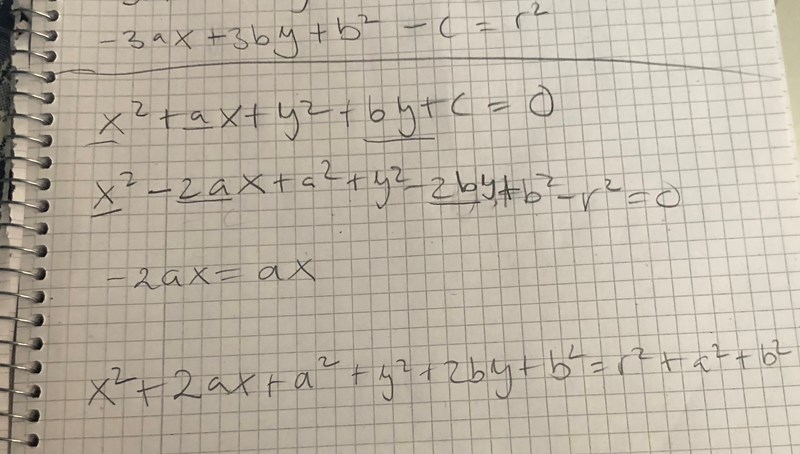 -3ax+3by+b² -c = r²
x²+ax+y²+by+c = 0
x²-2ax+a²+y²-2by+b²-r²=0
-2ax= ax
x²+2ax+a²+y²+2by+b²=r²+a²+b²